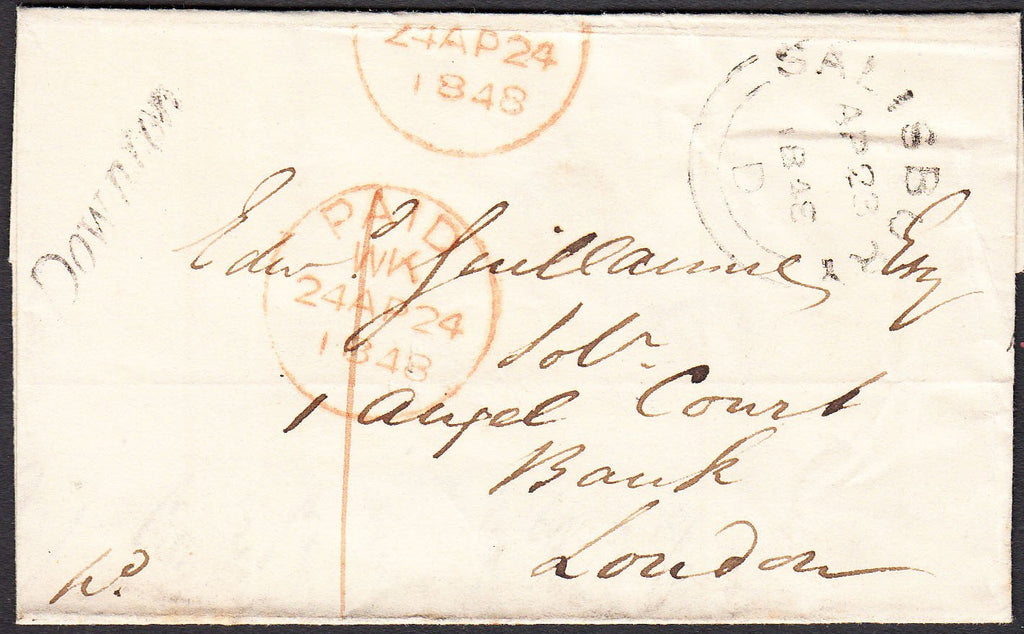 24AP24
1848
SALISBURY
AP23
1848
D
Downton
PAID
WK
24AP24
1848
Edwd. Guillaume Esq
Solr.
1 Angel Court
Bank
London
pd.